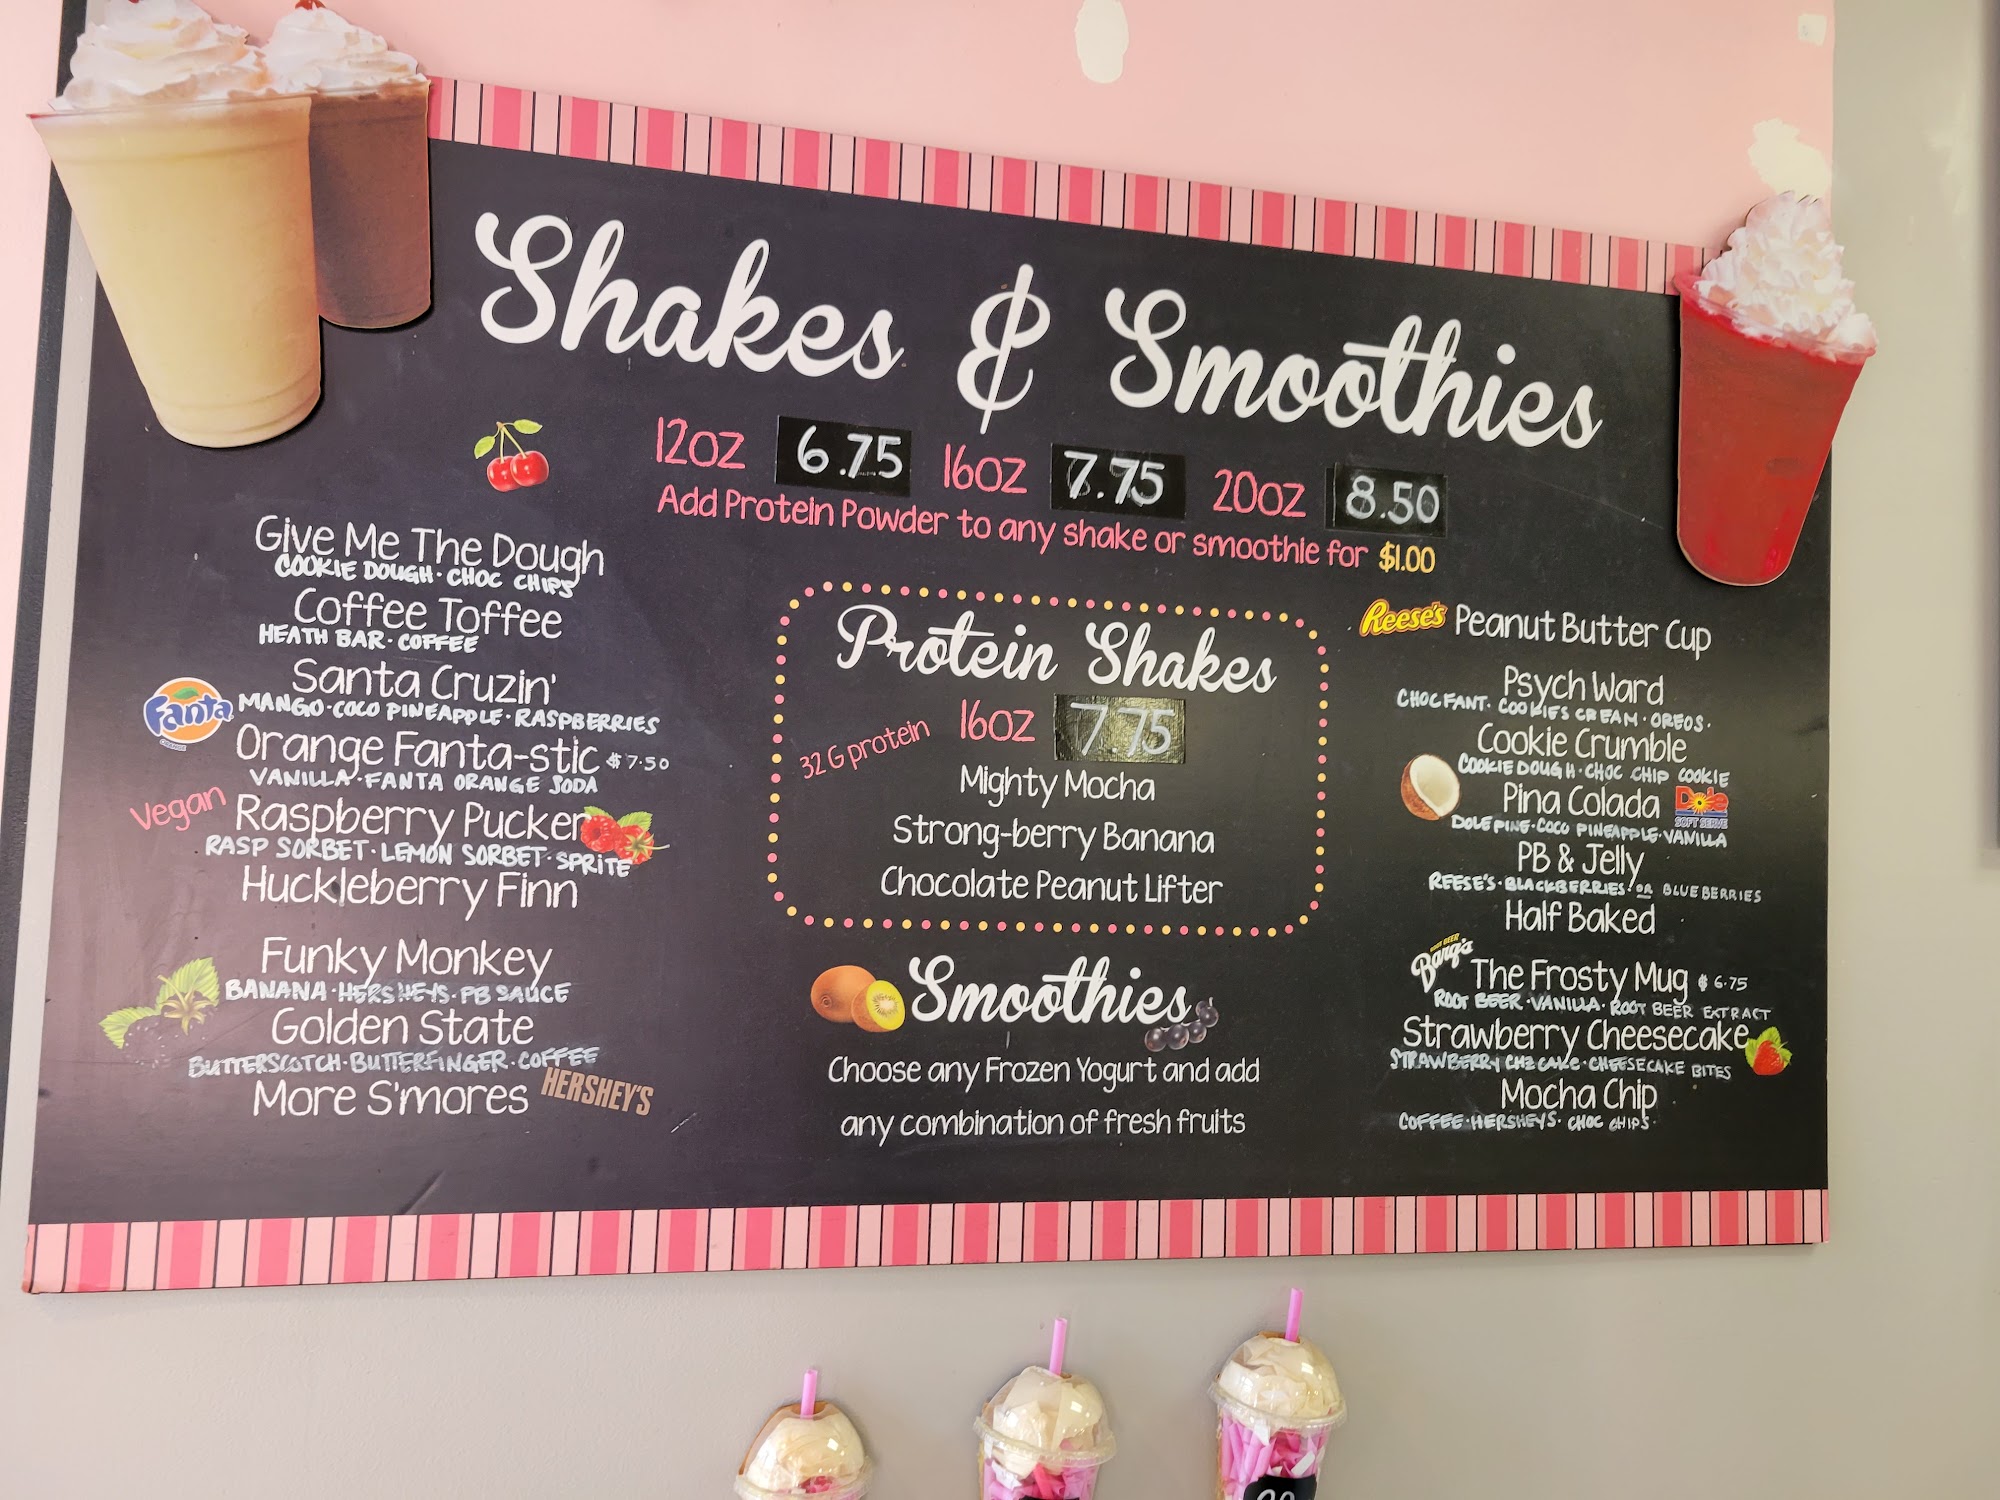 Shakes & Smoothies
12oz 6.75 16oz 7.75 20oz 8.50
Add Protein Powder to any shake or smoothie for $1.00
Give Me The Dough
COOKIE DOUGH · CHOC CHIPS
Coffee Toffee
HEATH BAR · COFFEE
Santa Cruzin'
MANGO · COCO PINEAPPLE · RASPBERRIES
Fanta
ORANGE
Orange Fanta-stic $7.50
VANILLA · FANTA ORANGE SODA
Vegan
Raspberry Pucker
RASP SORBET · LEMON SORBET · SPRITE
Huckleberry Finn
Funky Monkey
BANANA · HERSHEYS · PB SAUCE
Golden State
BUTTERSCOTCH · BUTTERFINGER · COFFEE
More S'mores HERSHEY'S
Protein Shakes
32 G protein
16oz 7.75
Mighty Mocha
Strong-berry Banana
Chocolate Peanut Lifter
Smoothies
Choose any Frozen Yogurt and add
any combination of fresh fruits
Reese's Peanut Butter Cup
Psych Ward
CHOC FANT · COOKIES CREAM · OREOS ·
Cookie Crumble
COOKIE DOUGH · CHOC CHIP COOKIE
Pina Colada
Dole
SOFT SERVE
DOLE PINE · COCO PINEAPPLE · VANILLA
PB & Jelly
REESE'S · BLACKBERRIES · OR BLUEBERRIES
Half Baked
ROOT BEER
Barq's
The Frosty Mug $6.75
ROOT BEER · VANILLA · ROOT BEER EXTRACT
Strawberry Cheesecake
STRAWBERRY CHZ CAKE · CHEESECAKE BITES
Mocha Chip
COFFEE · HERSHEYS · CHOC CHIPS ·